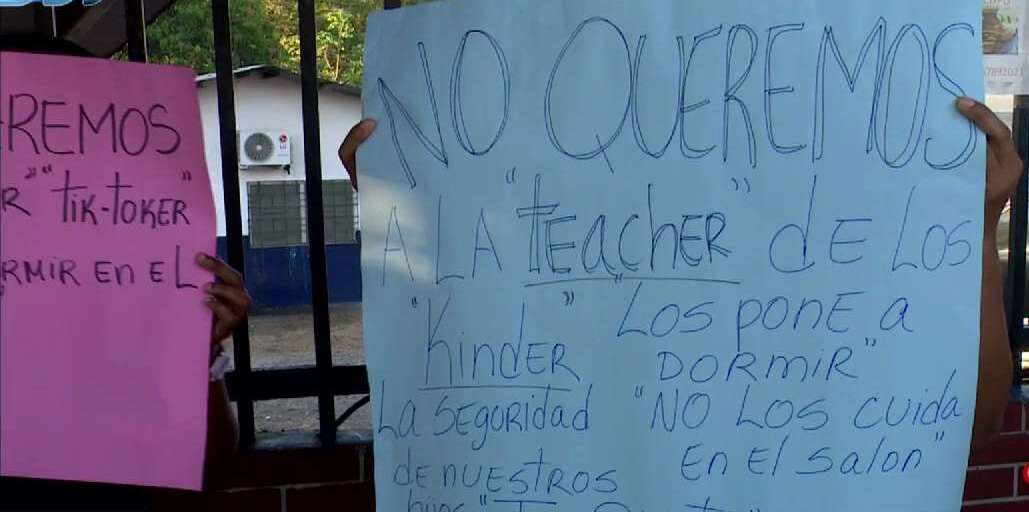 REMOS
R "tik-toker"
RMIR En EL
NO QUEREMOS
A LA "tEachER" dE Los
"KindER" "Los ponE a
DORMIR"
La SEGORidad "NO Los cuida
dE nUEStROS En El salon"
hijos